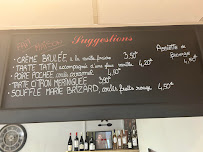 Suggestions
- CRÈME BRULÉE à la vanille 3,50€
- TARTE TATIN accompagnée d'une glace vanille 4,20€
- POIRE POCHÉE coulis caramel 4,50€
- TARTE CITRON MERINGUÉE 3,50€
- SOUFFLÉ MARIE BRIZARD, coulis fruits rouges 4,50€
Assiette de fromage
4,50€